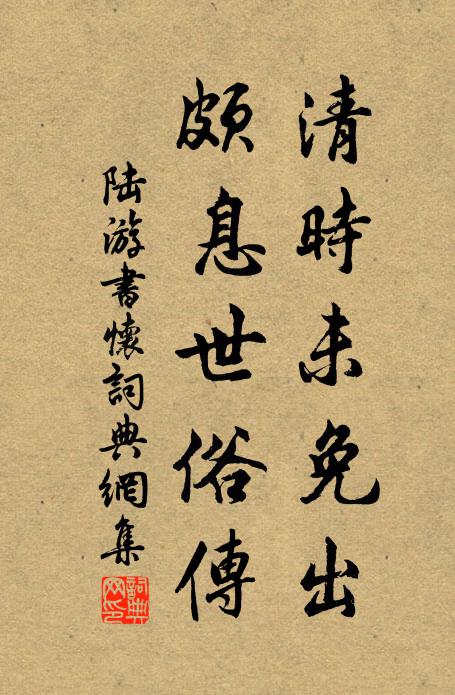 清時未免出
頗息世俗傳
陸游書懷詞典網集
詞典网印